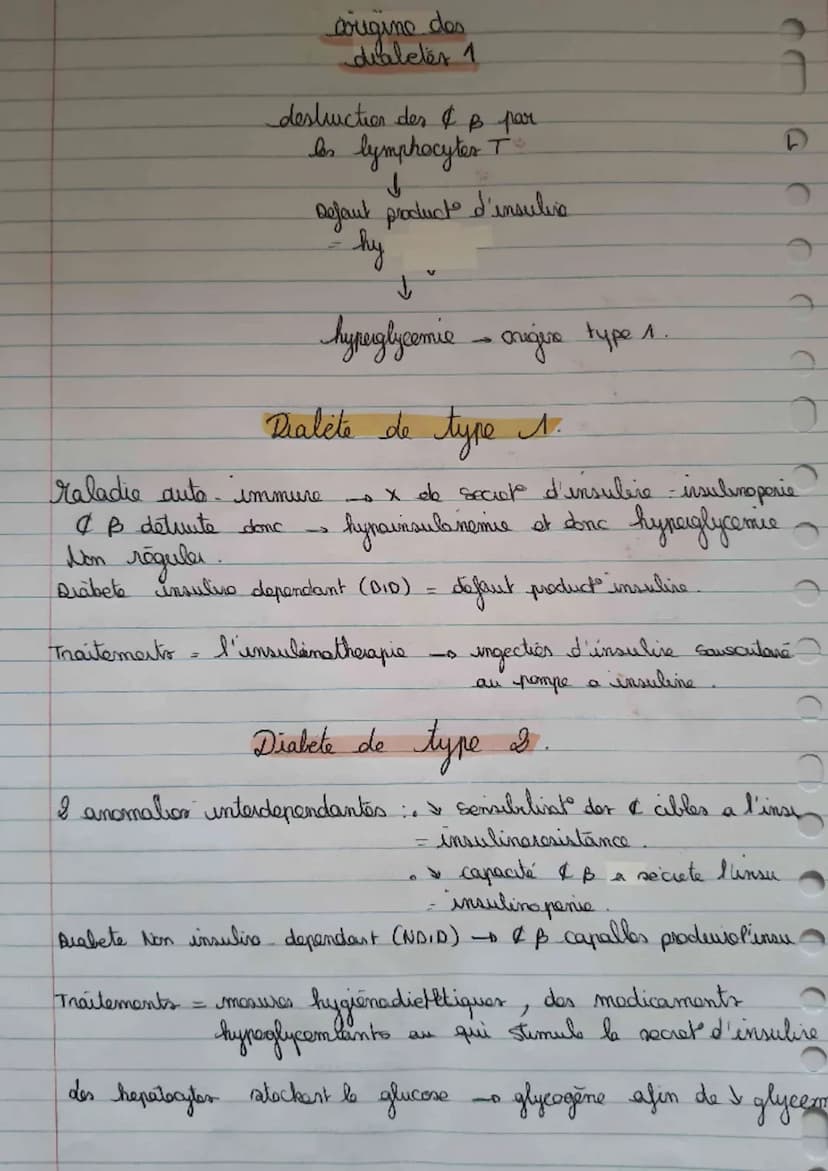 origine des
diabetes 1
destruction des ₵ β par
les lymphocytes T
↓
Défaut product° d'insuline
= hy
↓
hyperglycemie → origine type 1.
Diabète de type 1.
Maladie auto-immune → x de secret° d'insuline = insulinopenie
₵ β détruite donc → hypoinsulinemie et donc hyperglycemie
Non réguler.
Diabete insulino dependant (DID) = défaut product° insuline.
Traitements = l'insulinotherapie → ingection d'insuline souscutané
ou pompe a insuline.
Diabète de type 2.
2 anomalies interdependantes : • ↘ sensibilisat° des ₵ cibles a l'insu
= insulinoresistance.
• ↘ capacité ₵ β a sécrete l'insu
= insulinopenie.
Diabete Non insulino-dependant (NDID) → ₵ β capables l'insu
Traitements = mesures hygiénodietétiques, des medicaments
ou qui stimule la secret° d'insuline
des hepatocytes stockent le glucose → glycogène afin de ↓ glycem